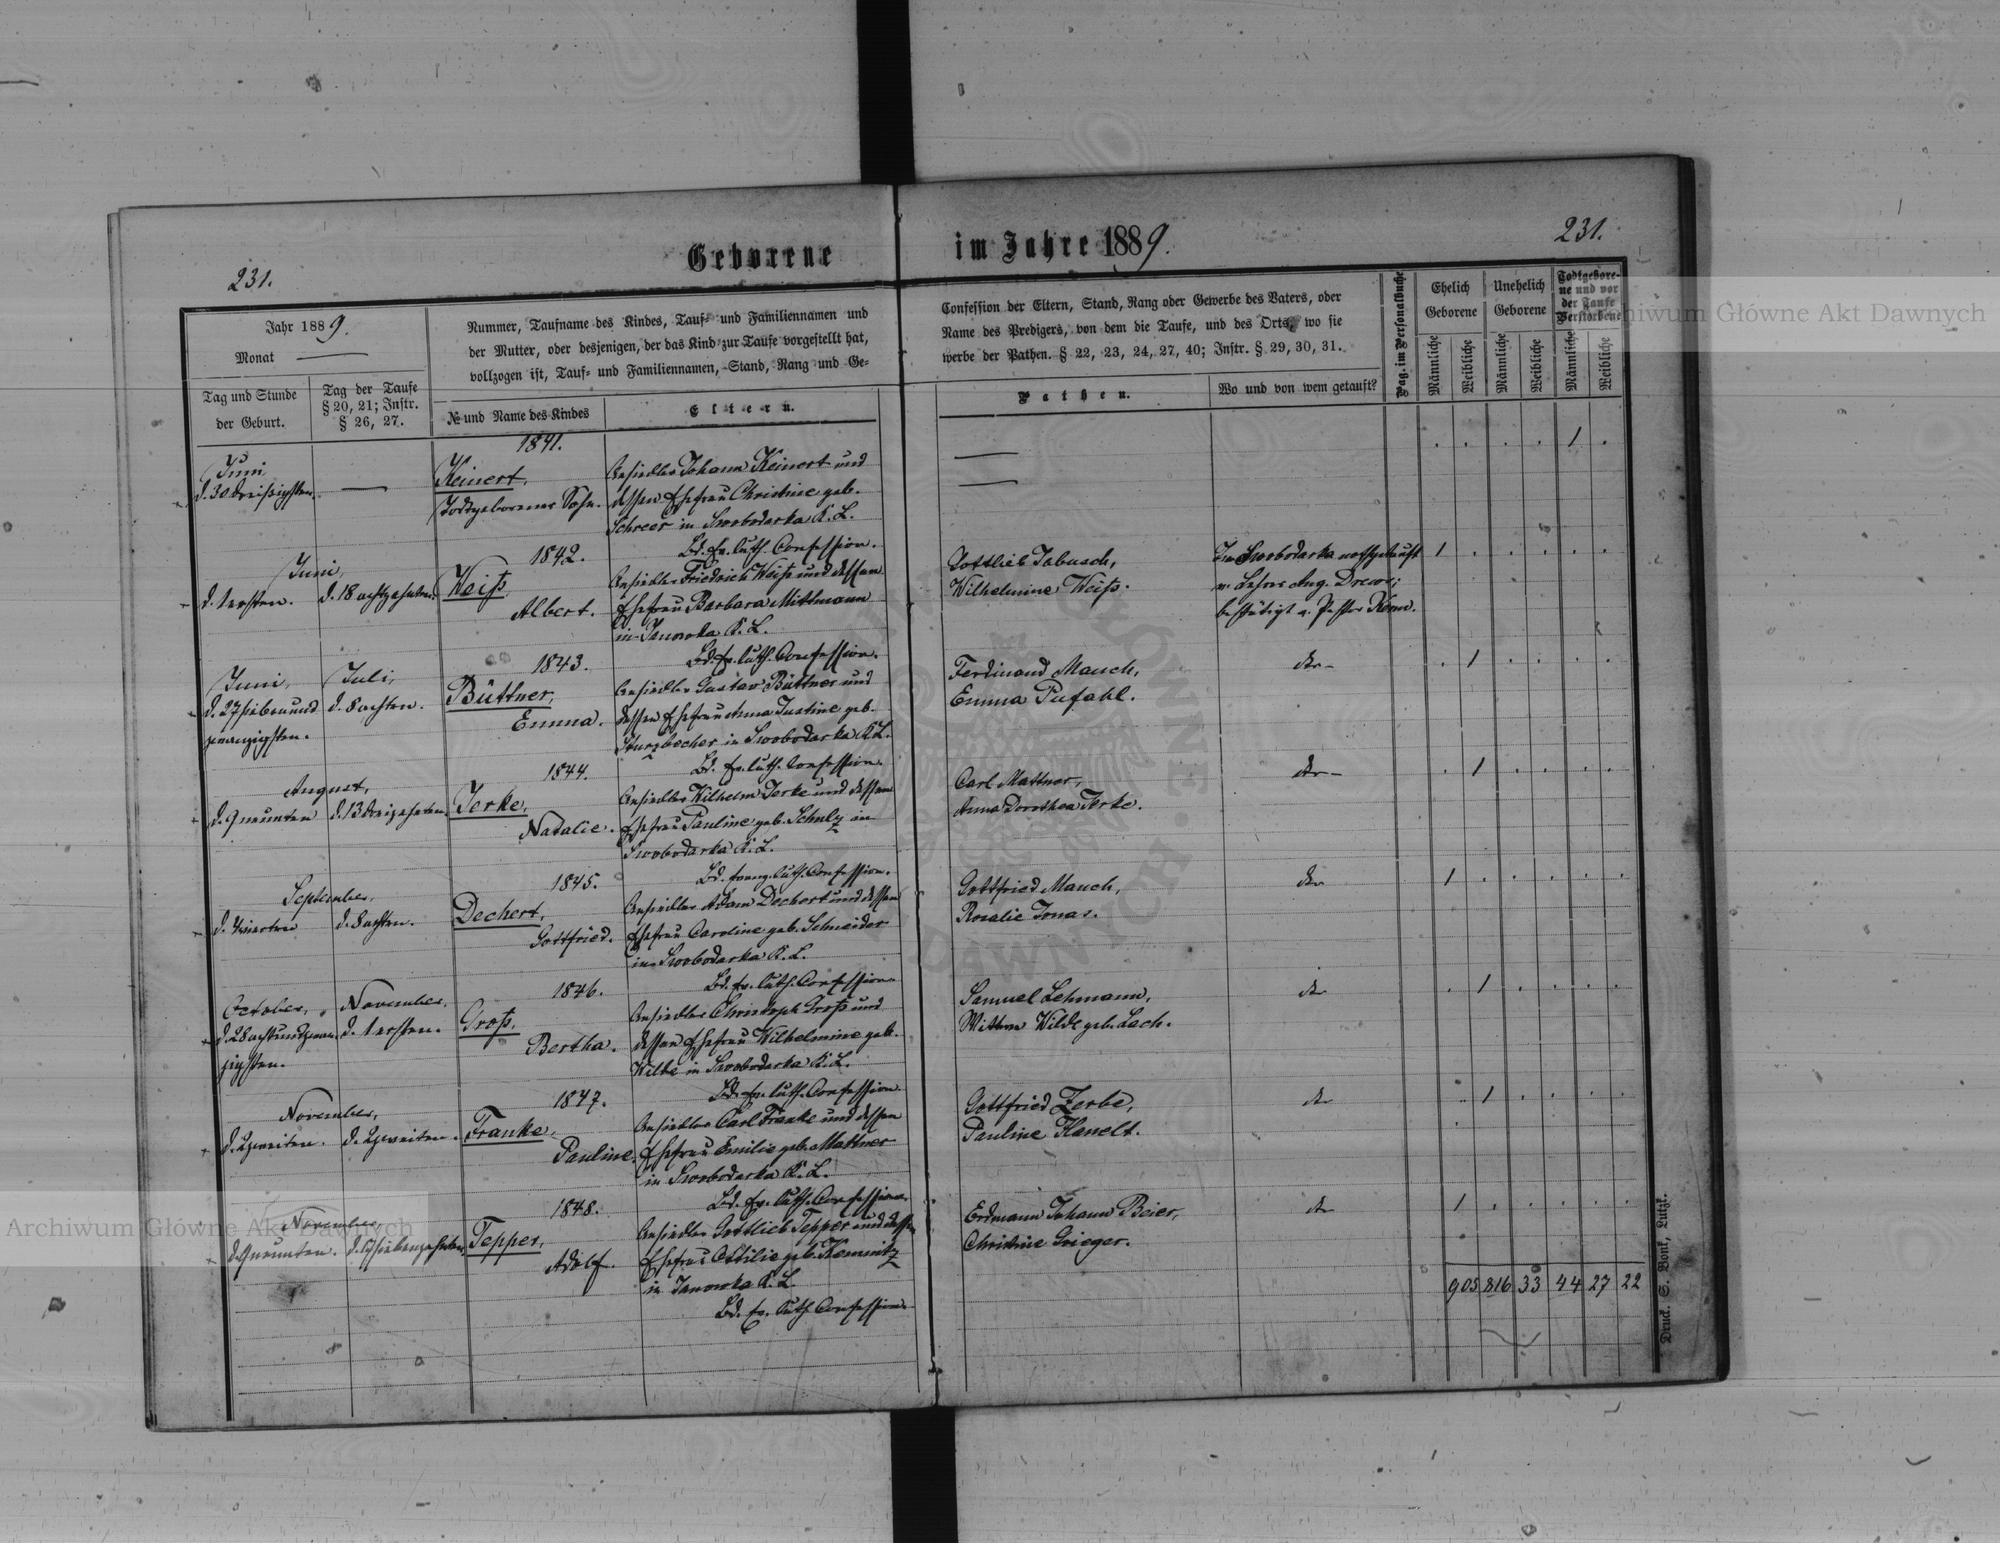 231.
Geborene
im Jahre 1889.
231.
Jahr 1889.
Monat
Tag und Stunde
der Geburt.
Tag der Taufe
§ 20, 21; Instr.
§ 26, 27.
Nummer, Taufname des Kindes, Tauf- und Familiennamen und
der Mutter, oder desjenigen, der das Kind zur Taufe vorgestellt hat,
vollzogen ist, Tauf- und Familiennamen, Stand, Rang und Ge-
№ und Name des Kindes
Eltern.
Confession der Eltern, Stand, Rang oder Gewerbe des Vaters, oder
Name des Predigers, von dem die Taufe, und des Orts, wo sie
werbe der Pathen. § 22, 23, 24, 27, 40; Instr. § 29, 30, 31.
Pathen.
Wo und von wem getauft?
Pag. im Personalbuche
Ehelich
Geborene
Unehelich
Geborene
Todtgebore-
ne und vor
der Taufe
Verstorbene
Männliche
Weibliche
Männliche
Weibliche
Männliche
Weibliche
1841.
Juni
d. 30 dreißigsten.
Keinert,
Todtgeborener Sohn.
Ansiedler Johann Keinert und
dessen Ehefrau Christine geb.
Schreer in Swobodarka K. L.
Bd. Ev. luth. Confession.
1
1842.
Juni,
d. 1 ersten.
d. 18 achtzehnten.
Weiß,
Albert.
Ansiedler Friedrich Weiß und dessen
Ehefrau Barbara Mittmann
in Janowka K. L.
Bd. Ev. luth. Confession.
Gottlieb Jabusch,
Wilhelmine Weiß.
In Swobodarka nothgetauft
v. Lehrer Aug. Drews;
bestätigt v. Pastor Kerm.
1
1843.
Juni,
d. 27 siebenund
zwanzigsten.
Juli,
d. 8 achten.
Büttner,
Emma.
Ansiedler Gustav Büttner und
dessen Ehefrau Anna Justine geb.
Sturzbecher in Swobodarka K. L.
Bd. Ev. luth. Confession.
Ferdinand Mauch,
Emma Pufahl.
1
1844.
August,
d. 9 neunten
d. 13 dreizehnten.
Jerke,
Natalie.
Ansiedler Wilhelm Jerke und dessen
Ehefrau Pauline geb. Schulz in
Swobodarka K. L.
Bd. evang. luth. Confession.
Carl Mattner,
Anna Dorothea Jerke.
1
1845.
September,
d. 4 vierten
d. 8 achten.
Dechert,
Gottfried.
Ansiedler Adam Dechert und dessen
Ehefrau Caroline geb. Schneider
in Swobodarka K. L.
Bd. Ev. luth. Confession
Gottfried Mauch,
Rosalie Jonas.
1
1846.
October,
d. 28 achtundzwan-
zigsten.
November,
d. 1 ersten.
Groß,
Bertha.
Ansiedler Christoph Groß und
dessen Ehefrau Wilhelmine geb.
Wilde in Swobodarka K. L.
Bd. Ev. luth. Confession.
Samuel Lehmann,
Wittwe Wilde geb. Lach.
1
1847.
November,
d. 2 zweiten.
d. 2 zweiten.
Franke,
Pauline.
Ansiedler Carl Franke und dessen
Ehefrau Emilie geb. Mattner
in Swobodarka K. L.
Bd. Ev. luth. Confession.
Gottfried Zerbe,
Pauline Hanelt.
1
1848.
November,
d. 9 neunten.
d. 17 siebenzehnten.
Tepper,
Adolf.
Ansiedler Gottlieb Tepper und dessen
Ehefrau Ottilie geb. Kemnitz
in Janowka K. L.
Bd. Ev. luth. Confession.
Erdmann Johann Beier,
Christine Grieger.
1
905 816 33 44 27 22
Druck. S. Bonk, Lutzk.
Archiwum Główne Akt Dawnych
Archiwum Główne Akt Dawnych